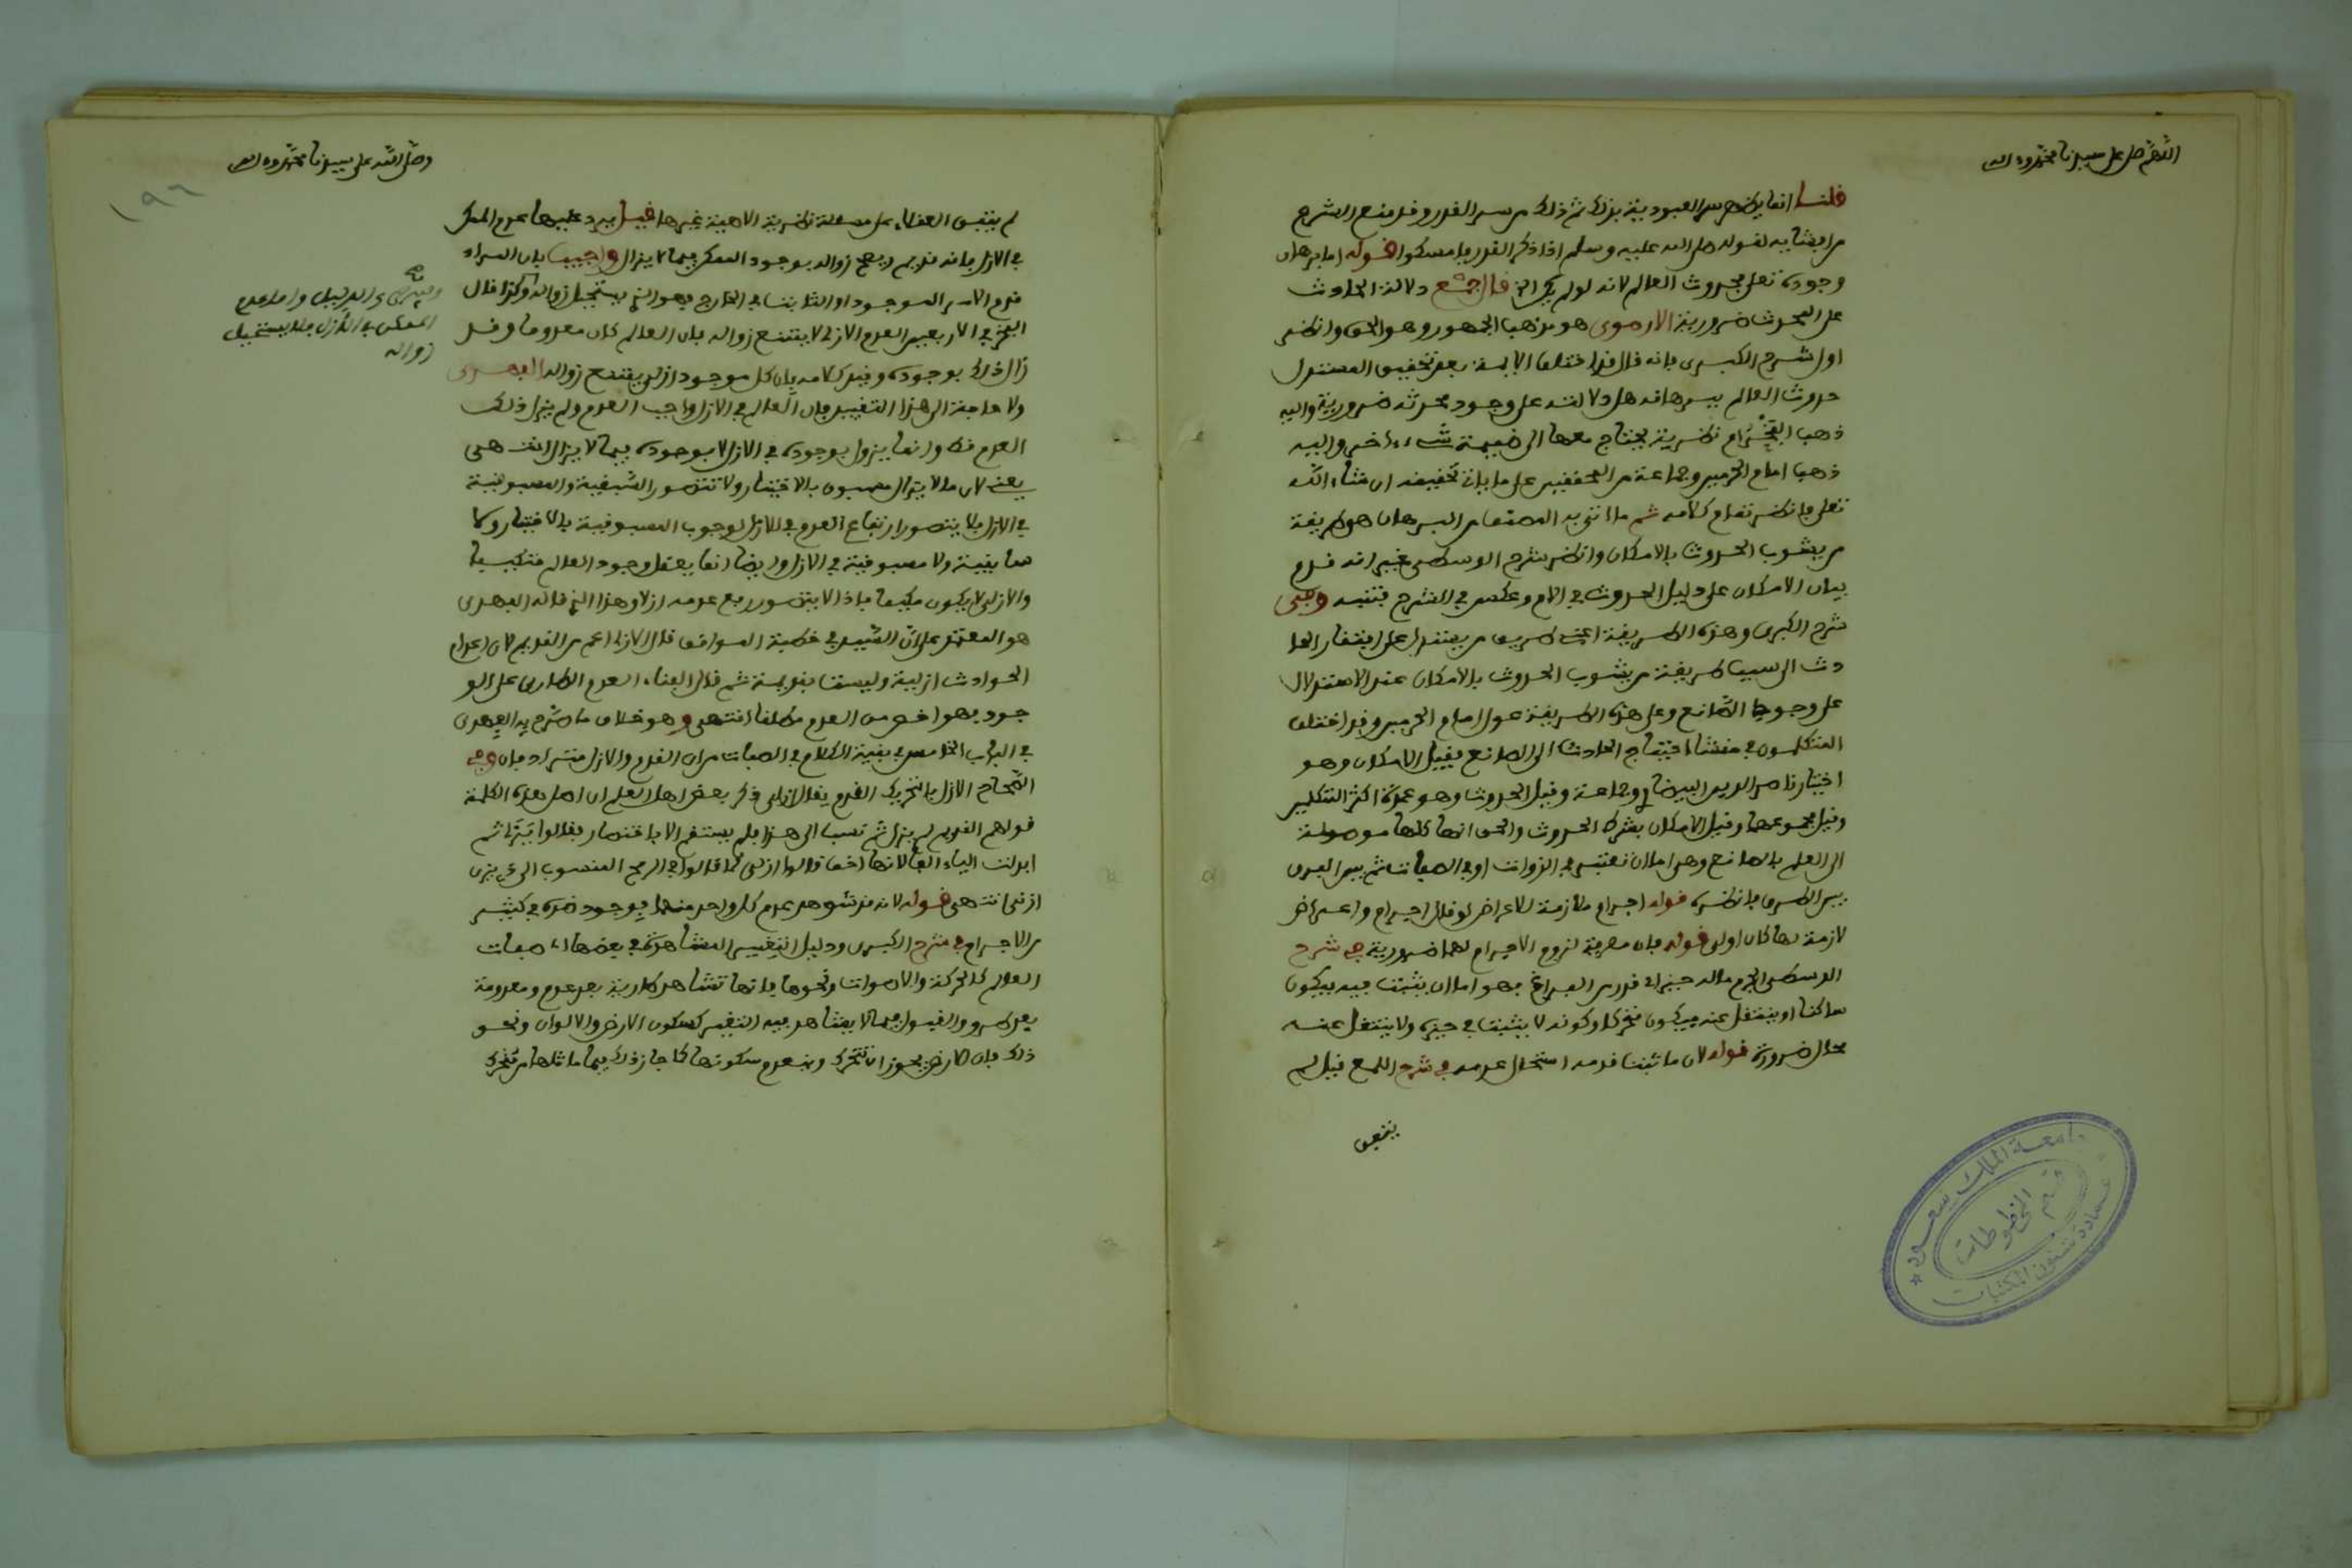 اللهم صل على سيدنا محمد وءاله
قلنا انما يظهر سر العبودية بذلك ثم ذلك من سر القدر وقد منع الشرع
من افشايه لقوله صلى الله عليه وسلم اذا ذكر القدر فامسكوا قوله اما برهان
وجوده تعلى فحدوث العالم لانه لو لم يكن الخ قال دلالة الحادث
على المحدث ضرورية الارموى هو مذهب الجمهور وهو الحق وانظر
اول شرح الكبرى فانه قال قد اختلف الايمة بعد تحقيق المستدل
حدوث العالم ببرهانه هل دلالته على وجود محدثه ضرورية واليه
ذهب الفخر ام نظرية يحتاج معها الى ضميمة شىء ءاخر واليه
ذهب امام الحرمين وجماعة من المحققين على ما ياتى تحقيقه ان شاء الله
تعلى فانظر تمام كلامه ثم ما اتى به المصنف من البرهان هو طريقة
من يشوب الحدوث بالامكان وانظر شرح الوسطى غير انه قدم
بيان الامكان على دليل الحدوث فى الام وعكس فى الشرح فتنبه وفى
شرح الكبرى وهذه الطريقة اعنى طريق من يستدل على افتقار الحا
دث الى سبب طريقة من يشوب الحدوث بالامكان عند الاستدلال
على وجود الصانع وعلى هذه الطريقة عول امام الحرمين وقد اختلف
المتكلمون فى منشا احتياج الحادث الى الصانع فقيل الامكان وهو
اختيار ناصر الدين البيضاوى وجماعة وقيل الحدوث وهو عمدة اكثر المتكلمين
وقيل مجموعهما وقيل الامكان بشرط الحدوث والحق انها كلها موصولة
الى العلم بالصانع وهى اما ان تعتبر فى الذوات او فى الصفات ثم بين الفرق
بين الطرق فانظره قوله اجرام ملازمة للاعراض لو قال اجرام واعراض
لازمة لها كان اولى قوله فان معرفة لزوم الاجرام لهما ضرورية فى شرح
الوسطى الجرم ماله حيز اى قدر من الفراغ فهو اما ان يثبت فيه فيكون
ساكنا او ينتقل عنه فيكون متحركا وكونه لا يثبت فى حيزه ولا ينتقل عنه
محال ضرورة قوله لان ما ثبت قدمه استحال عدمه فى شرح اللمع قيل لم
يتفق
وصلى الله على سيدنا محمد وءاله
١٩٦
لم يتفق العقلاء على مسئلة نظرية الاهية غيرها قيل يرد عليها عدم الممكن
فى الازل فانه قديم ويصح زواله بوجود الممكن فيما لا يزال واجيب بان المراد
قدم الامر الموجود او الثابت فى الخارج فهو الذى يستحيل زواله وكذا قال
الفخر فى الاربعين العدم الازلى لا يمتنع زواله فان العالم كان معدوما وقد
زال ذلك بوجوده وقيد كلامه بان كل موجود ازلى يمتنع زواله الفهرى
ولا حاجة الى هذا التقييد فان العالم فى الازل واجب العدم ولم يزل ذلك
العدم قط وانما يزول بوجوده فى الازل لا بوجوده فيما لا يزال انتهى
يعنى لان ما لا يزال مسبوق بالاختيار ولا تتصور السبقية والمسبوقية
فى الازل فلا يتصور ارتفاع العدم فى الازل لوجوب المسبوقية بالاختيار ولا
سابقية ولا مسبوقية فى الازل وايضا انما يعقل وجود العالم متكيفا
والازلى لا يكون مكيفا فاذا لا يتصور رفع عدمه ازلا وهذا الذى قاله الفهرى
هو المعتمد على ان السيد فى خطبة المواقف قال الازلى اعم من القديم لان اعدام
الحوادث ازلية وليست بقديمة ثم قال الفناء العدم الطارى على الو
جود فهو اخص من العدم مطلقا انتهى وهو خلاف ما صرح به الفهرى
فى الباب الخامس فى بقية الكلام فى الصفات من ان القدم والازل مترادفان وفى
الصحاح الازل بالتحريك القدم يقال ازلى ذكر بعض اهل العلم ان اصل هذه الكلمة
قولهم للقديم لم يزل ثم نسب الى هذا فلم يستقم الا باختصار فقالوا يَزَلى ثم
ابدلت الياء الفا لانها اخف فقالوا ازلى كما قالوا فى الرمح المنسوب الى ذى يزن
ازنى انتهى قوله لانه قد شوهد عدم كل واحد منهما بوجود ضده فى كثير
من الاجرام فى شرح الكبرى ودليل التغيير المشاهدة فى بعضها اى صفات
العالم كالحركة والاصوات ونحوها فانها تشاهد طارية بعد عدم ومعدومة
بعد طرو والقبول فيما لا يشاهد فيه التغير كسكون الارض والالوان ونحو
ذلك فان الارض يجوز ان تتحرك وينعدم سكونها كما جاز ذلك فيما ماثلها من متحرك
الدليل واما عدم
الممكن فى الازل فلا يستحيل
زواله
جامعة الملك سعود
قسم المخطوطات
عمادة شئون المكتبات